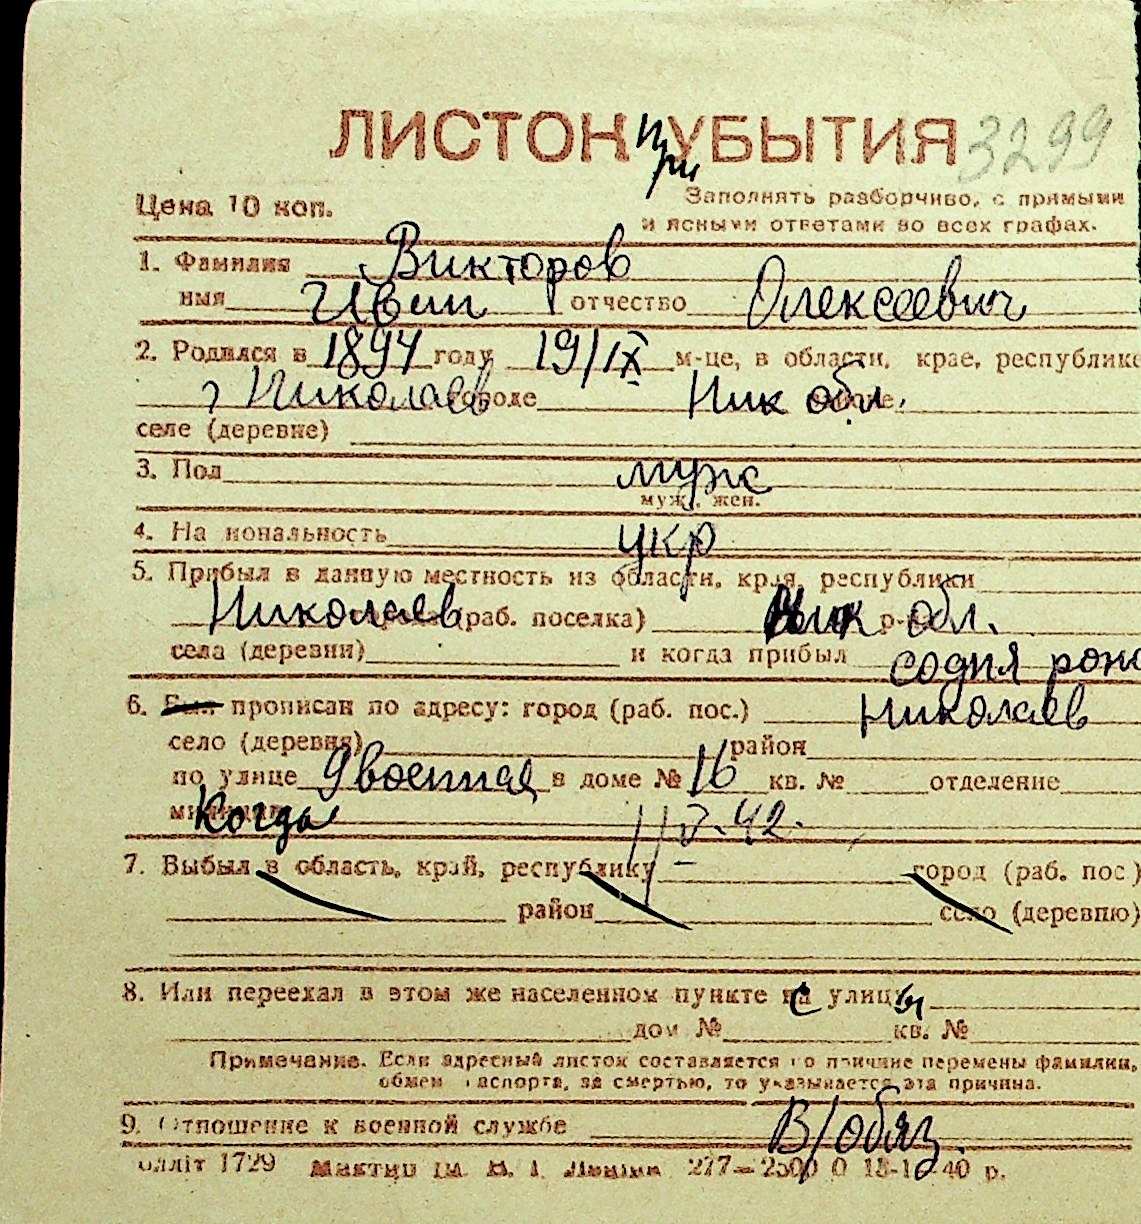 ЛИСТОК при УБЫТИЯ 3299
Цена 10 коп.
Заполнять разборчиво, с прямыми
и ясными ответами во всех графах.
1. Фамилия Викторов
имя Иван отчество Олексеевич
2. Родился в 1894 году 19/IX м-це, в области, крае, республике
г Николаев городе Ник обл.
селе (деревне)
3. Пол муж
муж., жен.
4. На иональность укр
5. Прибыл в данную местность из области, края, республики
Николаев (раб. поселка) Ник обл.
села (деревни) и когда прибыл
6. Был прописан по адресу: город (раб. пос.) Николаев
село (деревня) район
по улице 9 военная в доме № 16 кв. № отделение
милиции Когда 11/V-42.
7. Выбыл в область, край, республику город (раб. пос.)
район село (деревню)
8. Или переехал в этом же населенном пункте с улицы
дом № кв. №
Примечание. Если адресный листок составляется по причине перемены фамилии,
обмен паспорта, за смертью, то указывается эта причина.
9. Отношение к военной службе В/обяз.
1729 277—2500 40 р.